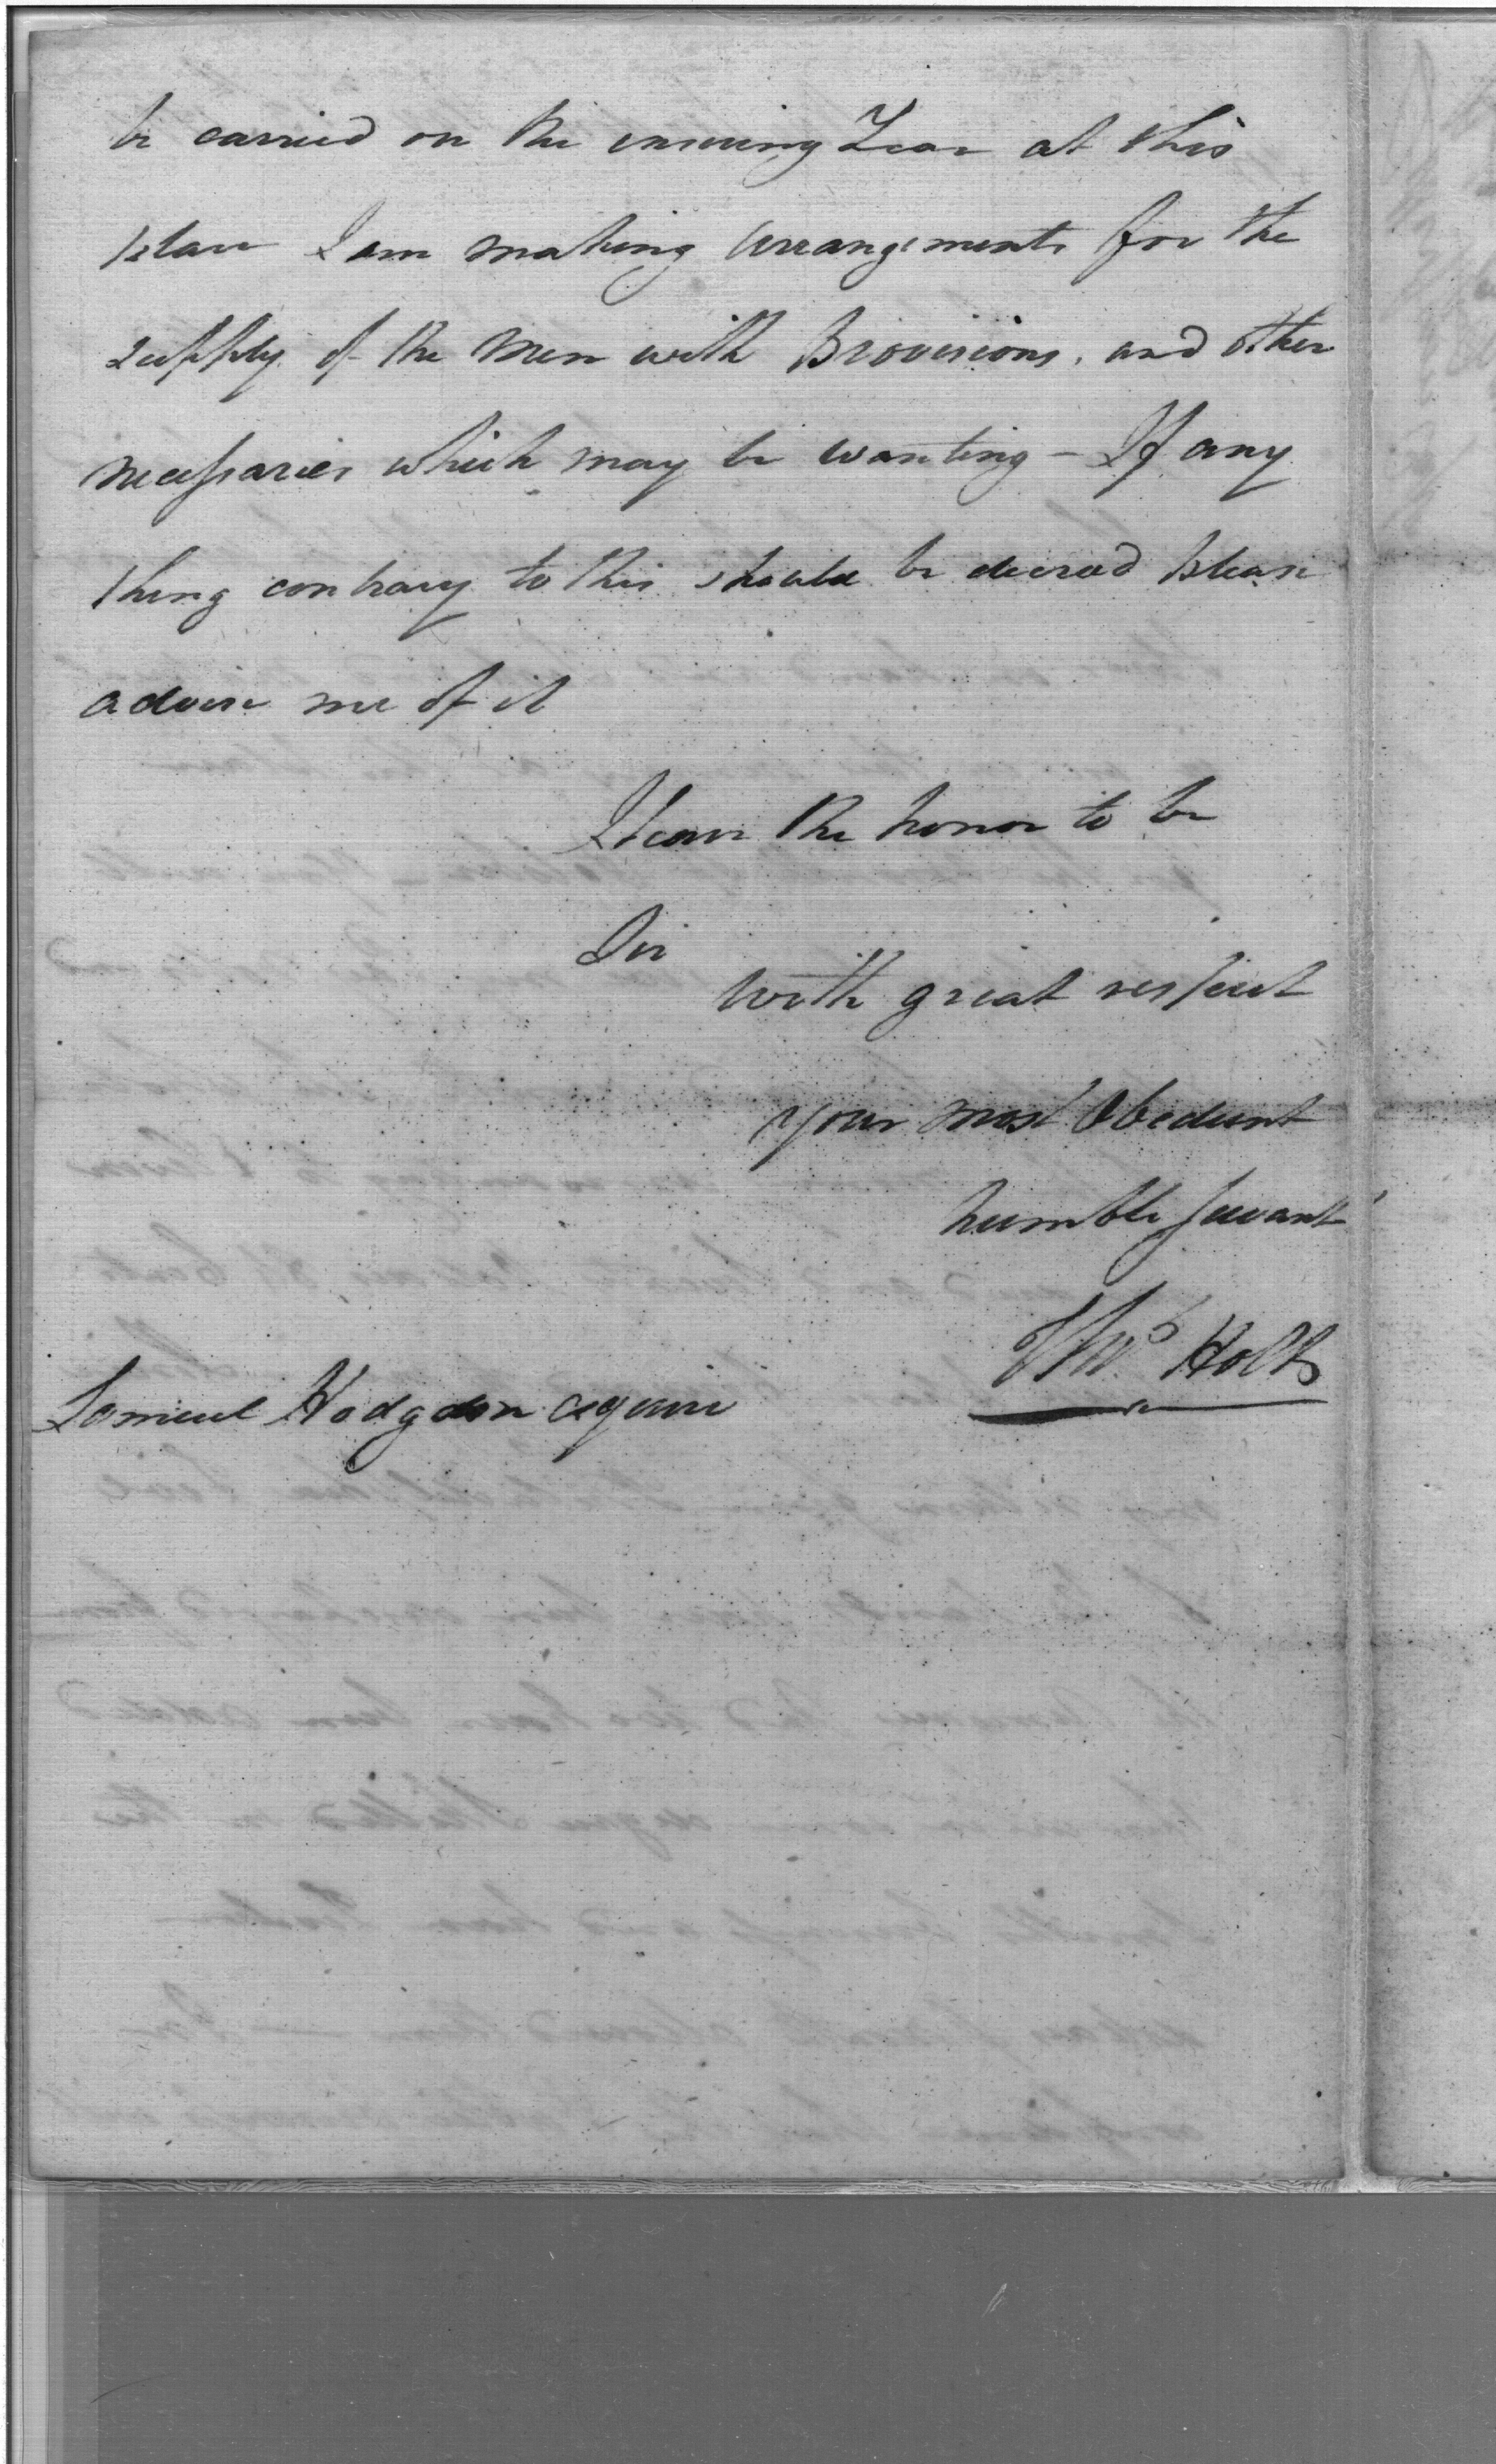 be carried on the ensuing Year at this
place I am making arrangements for the
supply of the Men with Provisions, and other
necessaries which may be wanting - If any
thing contrary to this should be decreed please
advise me of it
I have the honor to be
Sir
with great respect
your most Obedient
humble Servant
Thos. Holt
Samuel Hodgdon esquire